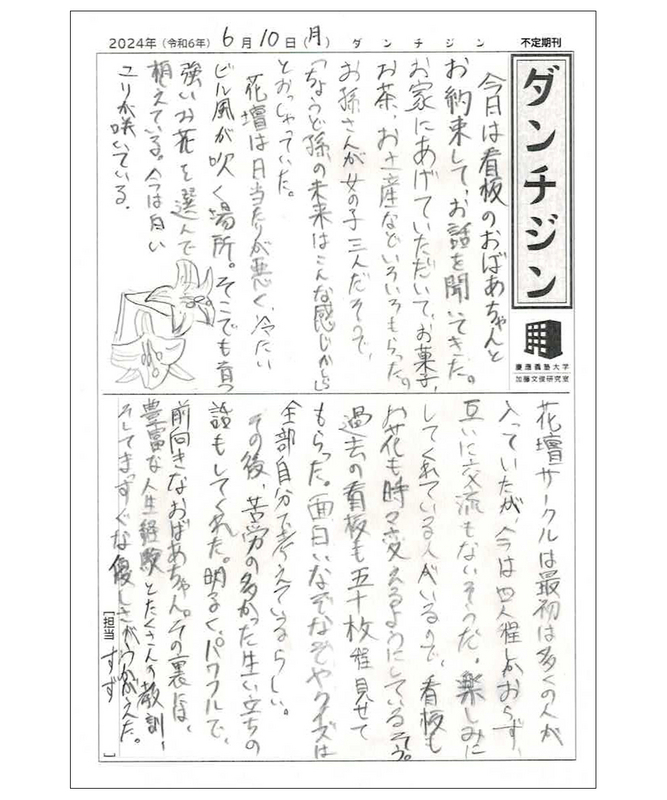 2024年（令和6年）6月10日（月）
ダンチジン
不定期刊
ダンチジン
慶應義塾大学
加藤文俊研究室
今日は看板のおばあちゃんと
お約束して、お話を聞いてきた。
お家にあげていただいて、お菓子、
お茶、お土産などいろいろもらった。
お孫さんが女の子三人だそうで、
「ちょうど孫の未来はこんな感じかしら」
とおっしゃっていた。
花壇は日当たりが悪く、冷たい
ビル風が吹く場所。そこでも育つ
強いお花を選んで
植えている。今は白い
ユリが咲いている。
花壇サークルは最初は多くの人が
入っていたが、今は四人程しかおらず、
互いに交流もないそうだ。楽しみに
してくれている人がいるので、看板も
お花も時々変えるようにしているそう。
過去の看板も五十枚程見せて
もらった。面白いなぞなぞやクイズは
全部自分で考えているらしい。
その後、苦労の多かった生い立ちの
話もしてくれた。明るく、パワフルで、
前向きなおばあちゃん。その裏には、
豊富な人生経験とたくさんの教訓、
そしてまっすぐな優しさがうかがえた。
［担当 すず ］